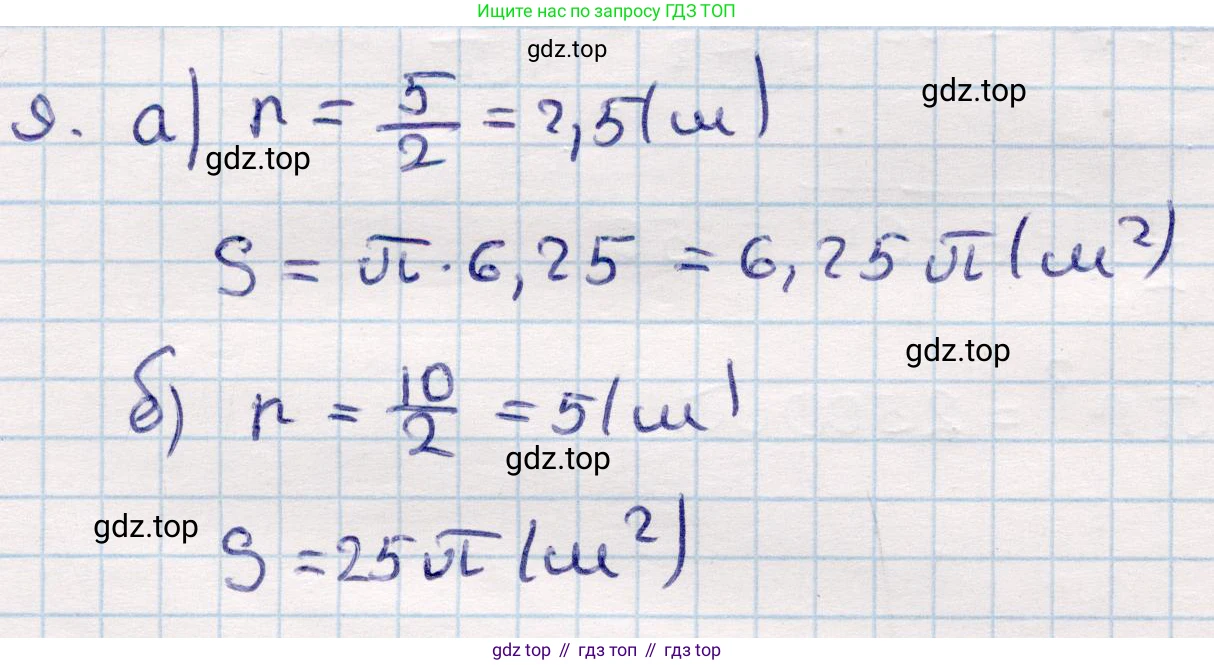 Ищите нас по запросу ГДЗ ТОП
gdz.top
9. а) r = 5/2 = 2,5 (м)
gdz.top
gdz.top
S = π · 6,25 = 6,25 π (м²)
gdz.top
б) r = 10/2 = 5 (м)
gdz.top
gdz.top
S = 25 π (м²)
gdz.top // гдз топ // гдз top